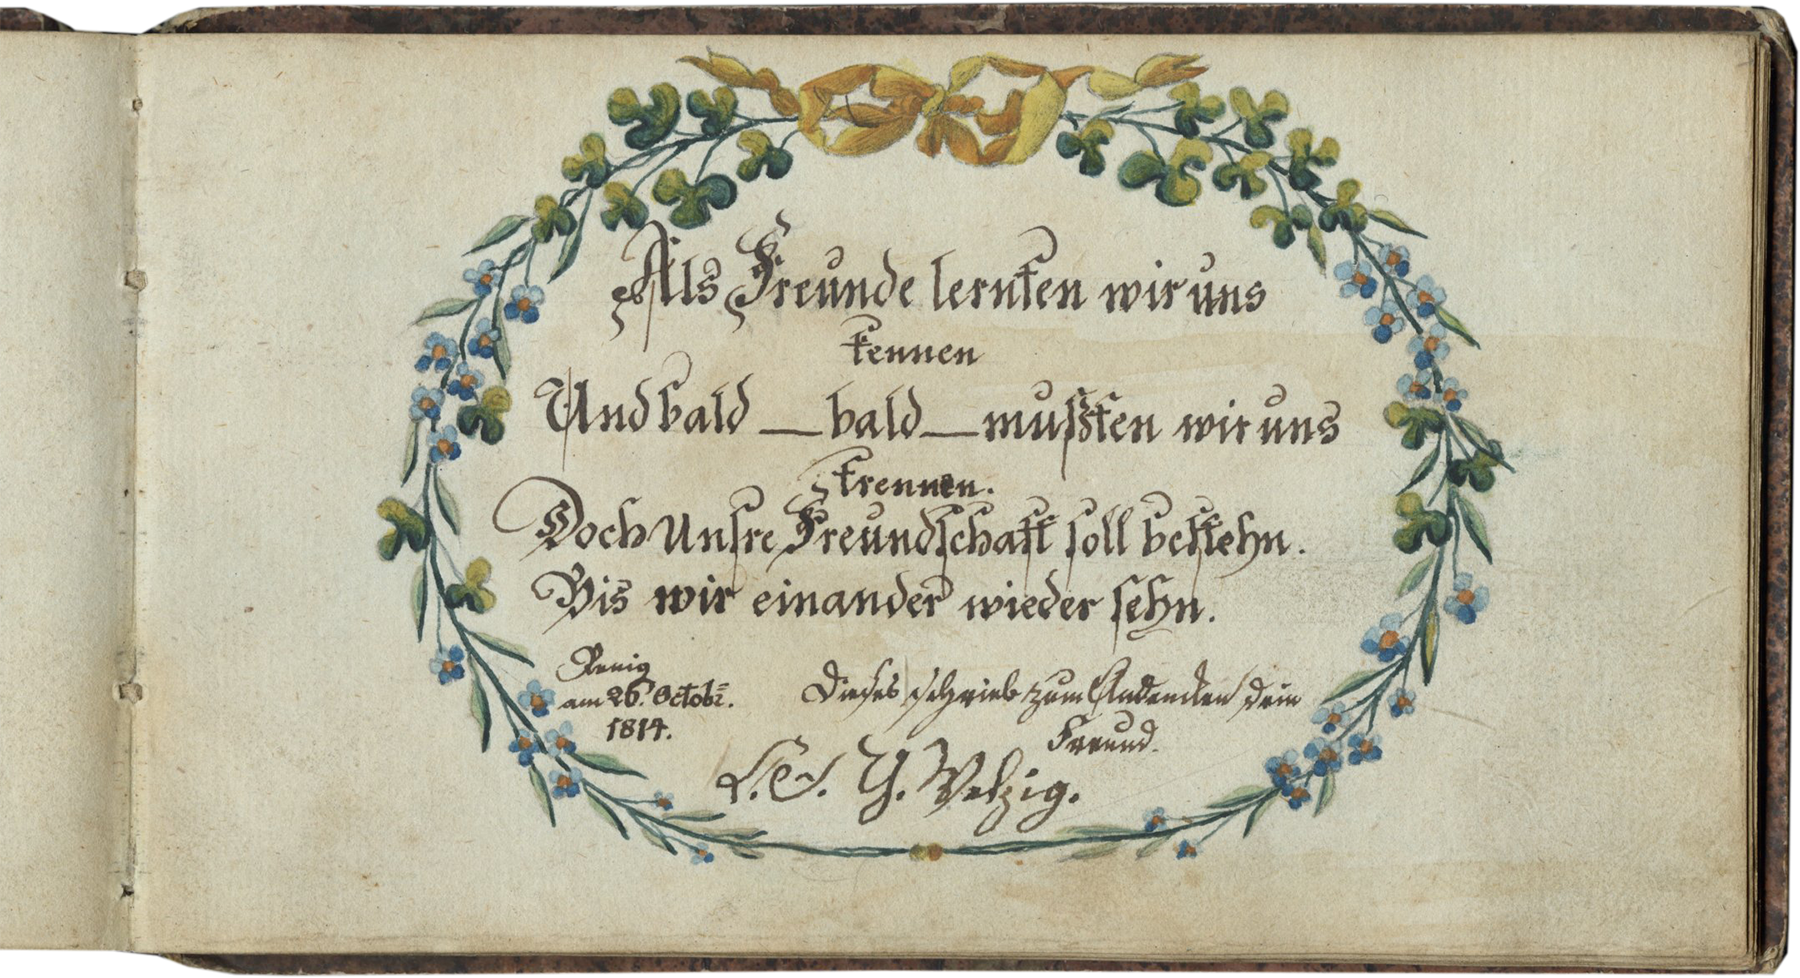 Als Freunde lernten wir uns
kennen
Und bald — bald — mußten wir uns
trennen.
Doch Unsre Freundschaft soll bestehn.
Bis wir einander wieder sehn.
Penig
am 26. Octobr.
1814.
Dieses schrieb zum Andenken dein
Freund.
G. Welzig.